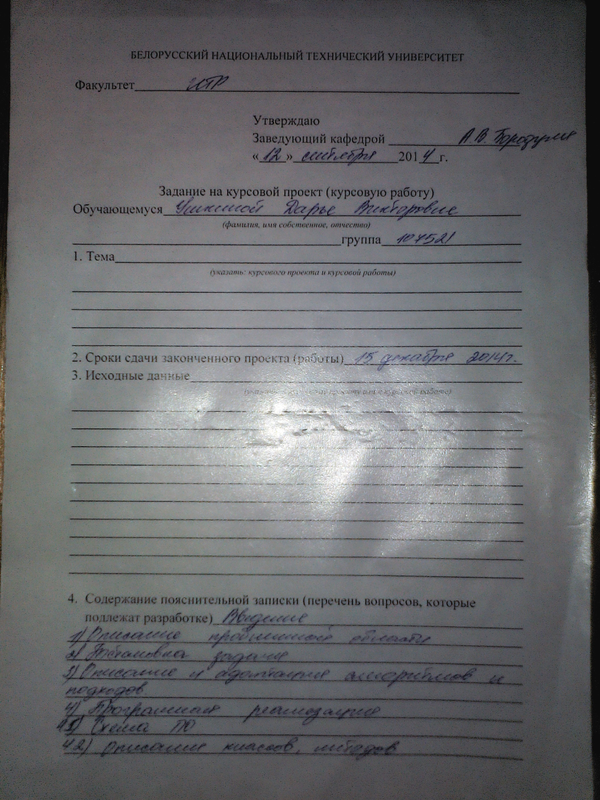 БЕЛОРУССКИЙ НАЦИОНАЛЬНЫЙ ТЕХНИЧЕСКИЙ УНИВЕРСИТЕТ
Факультет
Утверждаю
Заведующий кафедрой А.В. Бородуля
«12» сентября 2014 г.
Задание на курсовой проект (курсовую работу)
Обучающемуся Дарье Викторовне
(фамилия, имя собственное, отчество)
группа 107521
1. Тема
(указать: курсового проекта и курсовой работы)
2. Сроки сдачи законченного проекта (работы) 15 декабря 2014г.
3. Исходные данные
4. Содержание пояснительной записки (перечень вопросов, которые
подлежат разработке) Введение
1) Описание проблемной области
2) Постановка задачи
3) Описание и адаптация алгоритмов и
подходов
4) Программная реализация
4.1) Схема ПО
4.2) Описание классов, методов